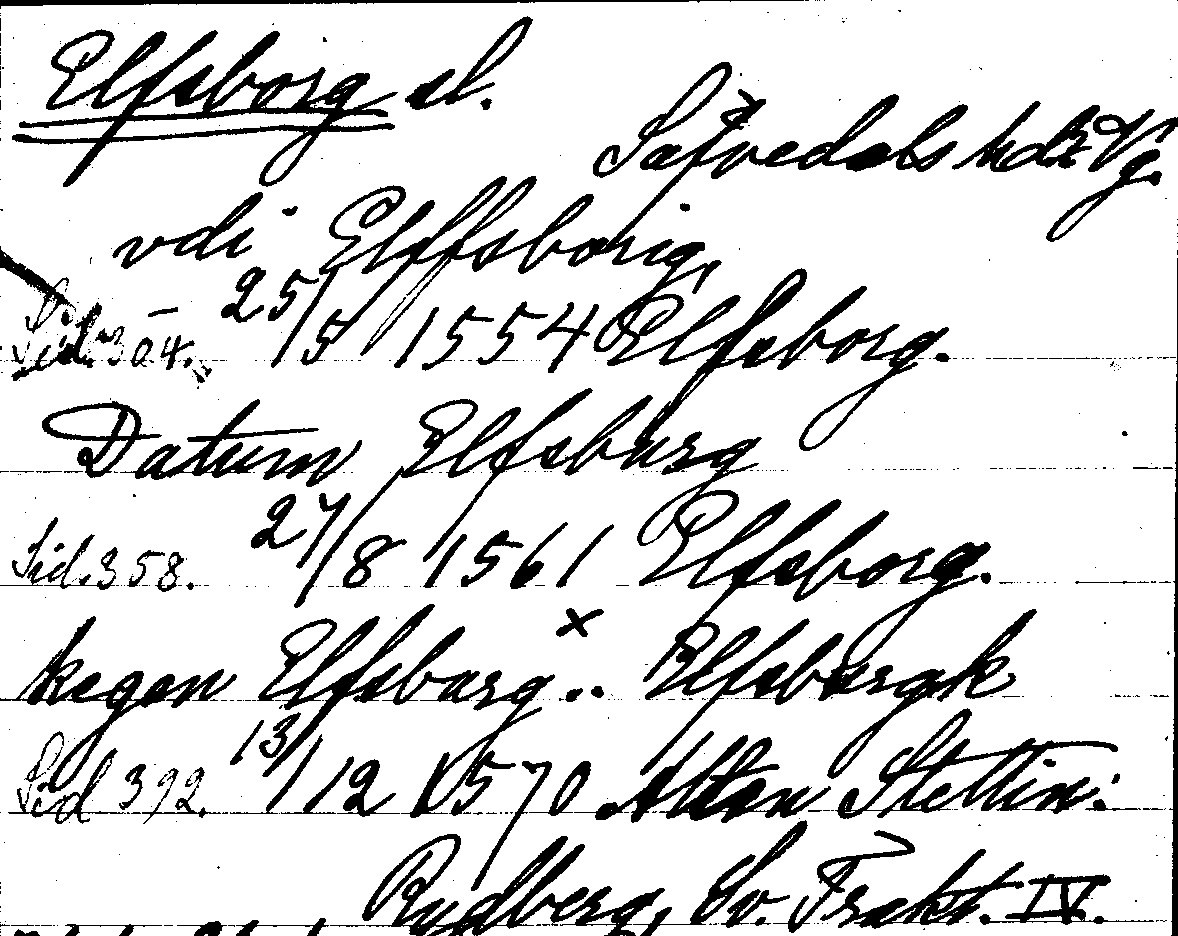 Elfsborg sl.
Säfvedals hd Vg.
vdi Elffsborig,
Sid. 304. 25/5 1554 Elfsborg.
Datum Elfsburg
Sid. 358. 27/8 1561 Elfsborg.
kegen Elfsburg .. Elfsburgk
Sid 392. 13/12 1570 Alten Stettin.
Rydberg, Sv. Trakt. IV.